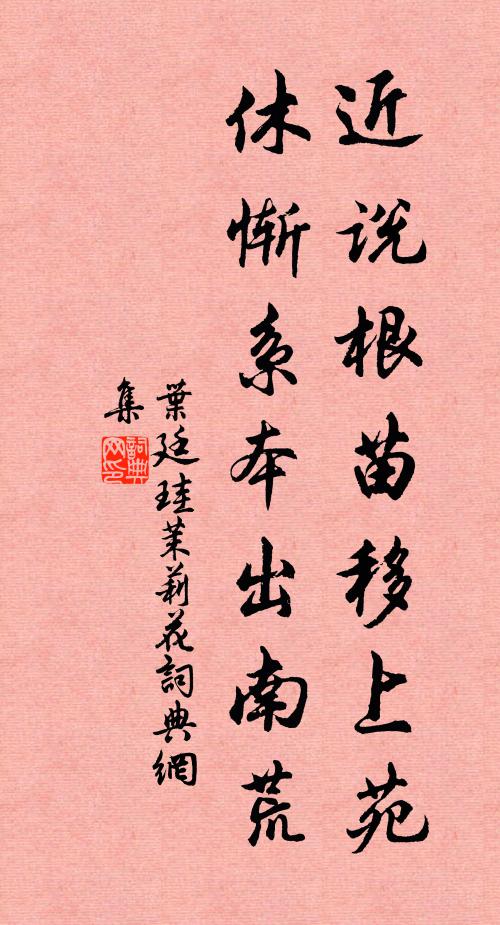 近説根苗移上苑
休慚系本出南荒
葉廷珪茉莉花詞典網
集
詞典
网印